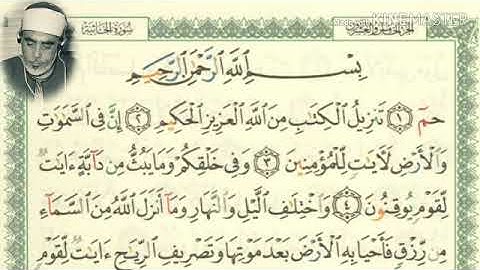 KINEMASTER
سُورَةُ الجَاثِيَةِ
بِسْمِ اللَّهِ الرَّحْمَٰنِ الرَّحِيمِ
حمٓ ١ تَنزِيلُ الْكِتَابِ مِنَ اللَّهِ الْعَزِيزِ الْحَكِيمِ ٢ إِنَّ فِي السَّمَاوَاتِ
وَالْأَرْضِ لَآيَاتٍ لِّلْمُؤْمِنِينَ ٣ وَفِي خَلْقِكُمْ وَمَا يَبُثُّ مِن دَآبَّةٍ ءَايَاتٌ
لِّقَوْمٍ يُوقِنُونَ ٤ وَاخْتِلَافِ الَّيْلِ وَالنَّهَارِ وَمَآ أَنزَلَ اللَّهُ مِنَ السَّمَآءِ
مِن رِّزْقٍ فَأَحْيَا بِهِ الْأَرْضَ بَعْدَ مَوْتِهَا وَتَصْرِيفِ الرِّيَاحِ ءَايَاتٌ لِّقَوْمٍ